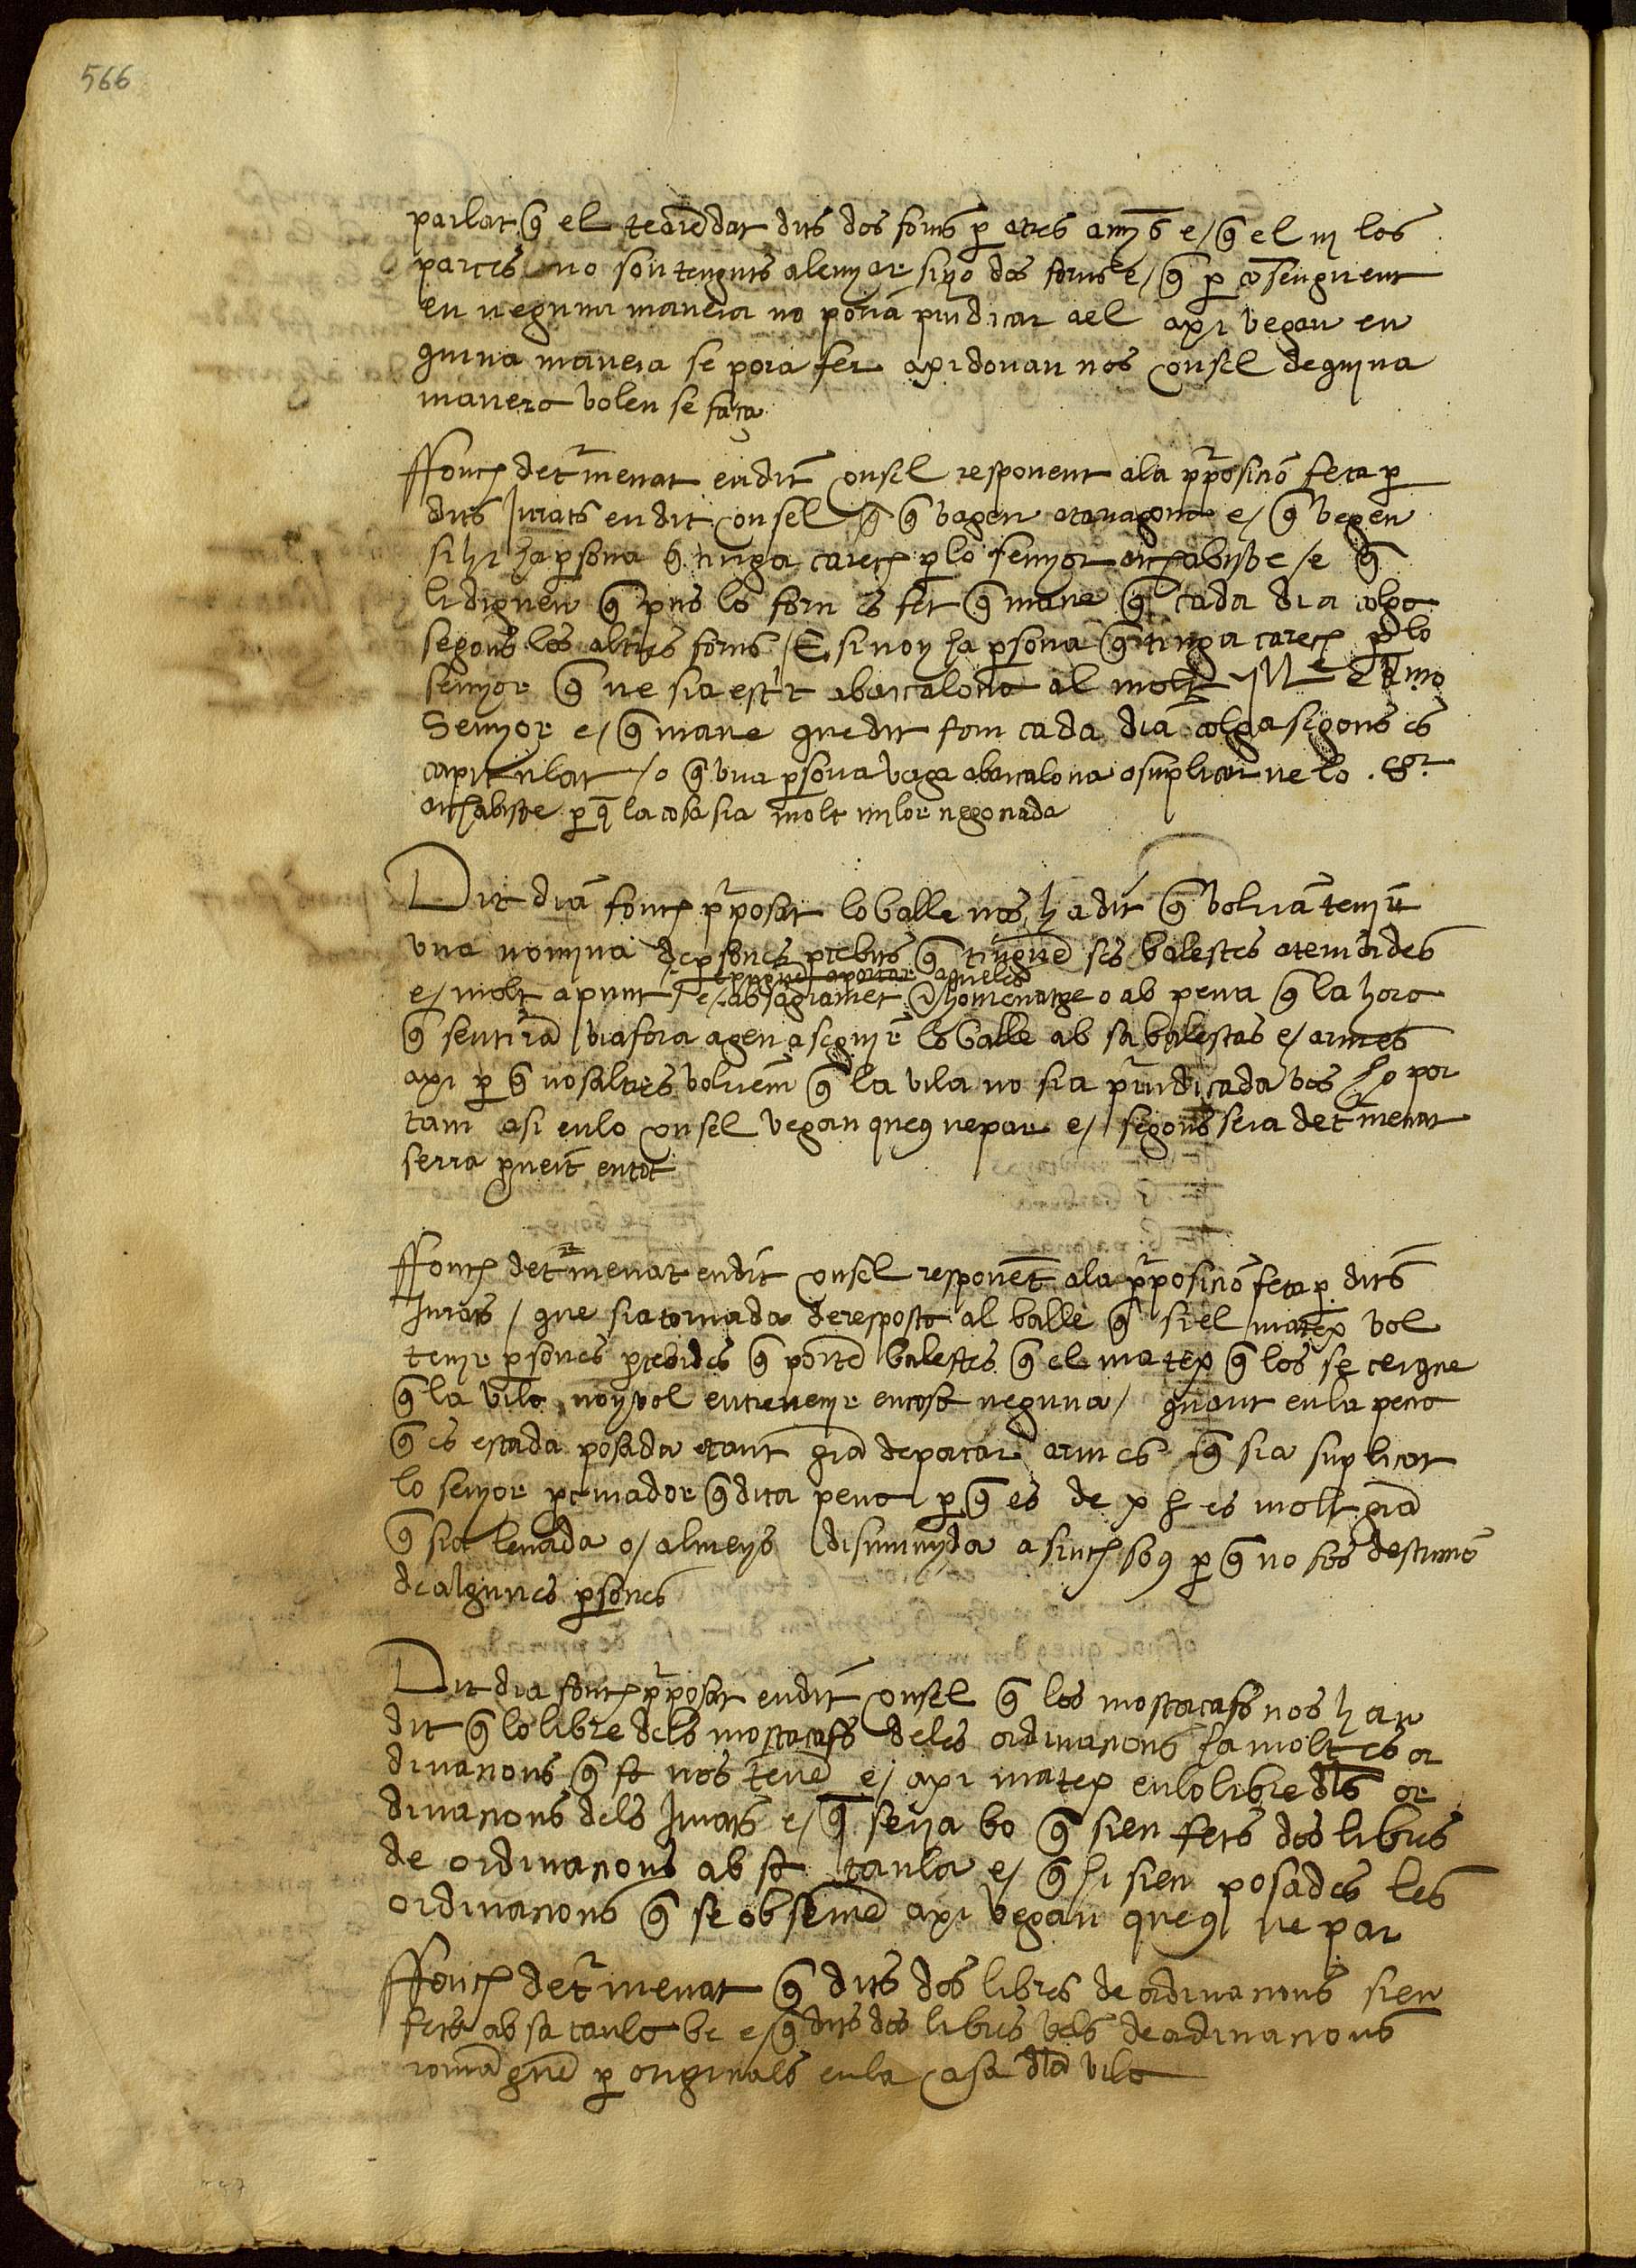 566
parlat q̄ el te arēdat dits dos forns p̱ atres anys e/ q̄ el ni los
parces no son tenguts a lenyar sino dos forns e/ q̄ p̱ cōseguent
en neguna manera no poria prudicar a el axi vegau en
quina manera se pora fer axi donau nos consel de quina
manera volen se faca
ffonch det̄menat en dit consel responent a la p̄posicio feta p̱
dits Jurats en dit consel q̄ vagen a taragona e/ q̄ vegen
si hi ha p̱sona q̄ tinga carech p̱ lo senyor archabisbe /e q̄
li diguen q̄ pus lo forn es fet q̄ mane q̄ cada dia colga
segons los altres forns /E si noy ha p̱sona q̄ tinga carech p̱ lo
senyor q̄ ne sia escrit a barcalona al molt
Senyor e/ q̄ mane que dit forn cada dia colga segons es
capitulat /o q̄ una p̱sona vaga a barcalona a suplicar ne lo .Sr.
archabisbe p̱ q̄ la cosa sia molt milor negociada
Dit dia fonch p̄posat lo balle nos ha dit q̄ volria tenir
una nomina de p̱sones prebits q̄ tinguē ses balestes atemcides
e/ molt a punt /e/ ab sagramēt e homenatge o ab pena q̄ la hora
q̄ sentirā viafora agen a seguir lo balle ab sa balestas e/ armes
axi p̱ q̄ nosaltres volriem q̄ la vila no sia p̄iudicada vos ho por
tam asi en lo consel vegau queus ne par e/ segons sera det̄menat
serra p̱ueit en tot
ffonch det̄menat en dit consel responēt a la p̄posicio feta p̱ dits
Jurats / que sia tornada de resposta al balle q̄ si el matex vol
tenir p̱sones prebides q̄ portē balestes q̄ el matex q̄ los se tengue
q̄ la vila noy vol entrevenir en cosa neguna / quant en la pena
q̄ es estada posada de portar armes q̄ sia suplicat
lo senyor p̱curador q̄ dita pena p̱ q̄ es de x es molt grā
q̄ sia levada o/ almeys disminuyda a sinch sous p̱ q̄ no fos destrucio
de algunes p̱sones
Dit dia fonch p̄posat en dit consel q̄ los mostacafs nos han
dit q̄ lo libre dels mostacafs de les ordinacions ha moltes or
dinacions q̄ nos tenē e/ axi matex en lo libre dls or
dinacions dels Jurats e/ q̄ seria bo q̄ sien fets dos libres
de ordinacions ab sa taula e/ q̄ hi sien posades les
ordinacions q̄ se observē axi vegau queus ne par
ffonch det̄menat q̄ dits dos libres de ordinacions sien
fets ab sa taula be e/ q̄ dits dos libres vels de ordinacions
romāguē p̱ originals en la casa dla vila